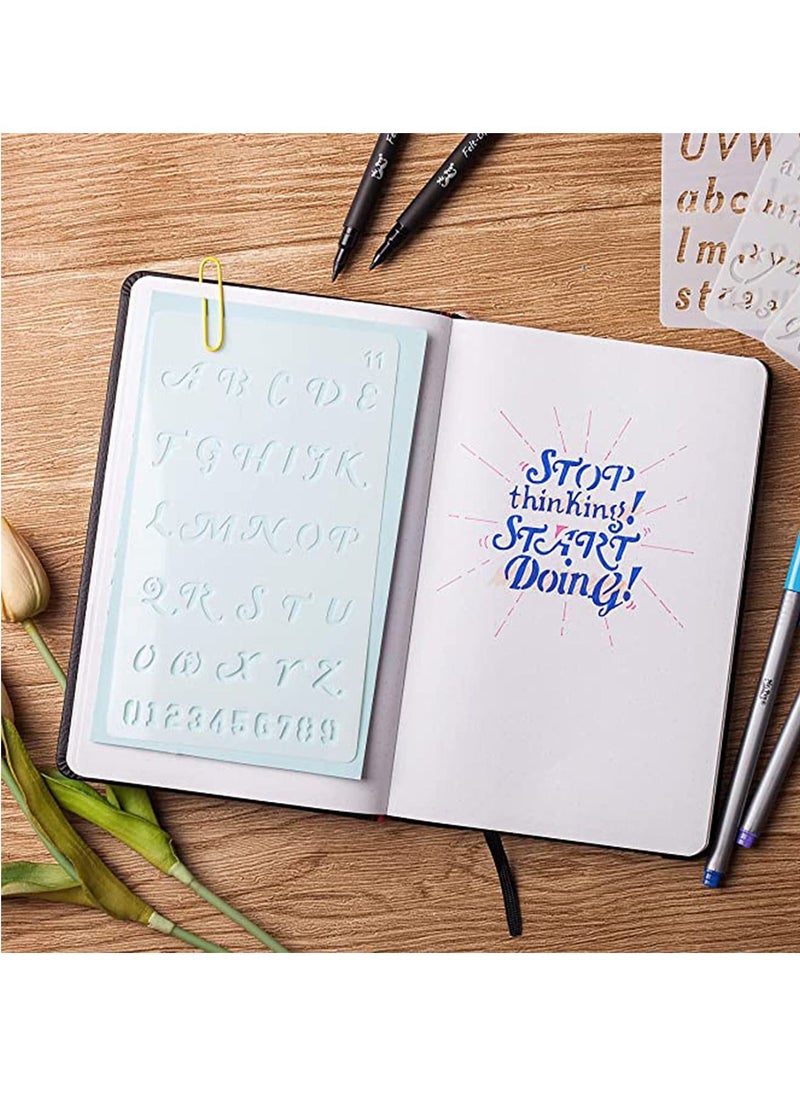 11
A B C D E
F G H I J K
L M N O P
Q R S T U
V W X Y Z
0123456789
STOP
thinking!
START
DoinG!
UVW
abc
lm
st